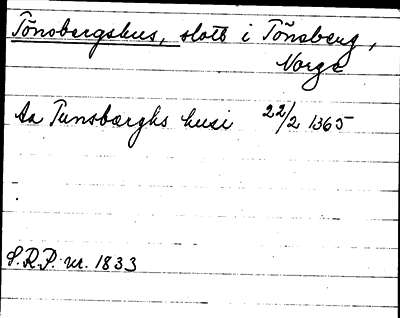 Tönsbergshus, slott i Tönsberg,
Norge
Aa Tunsbærghs husi 22/2 1365
S.R.P. nr. 1833